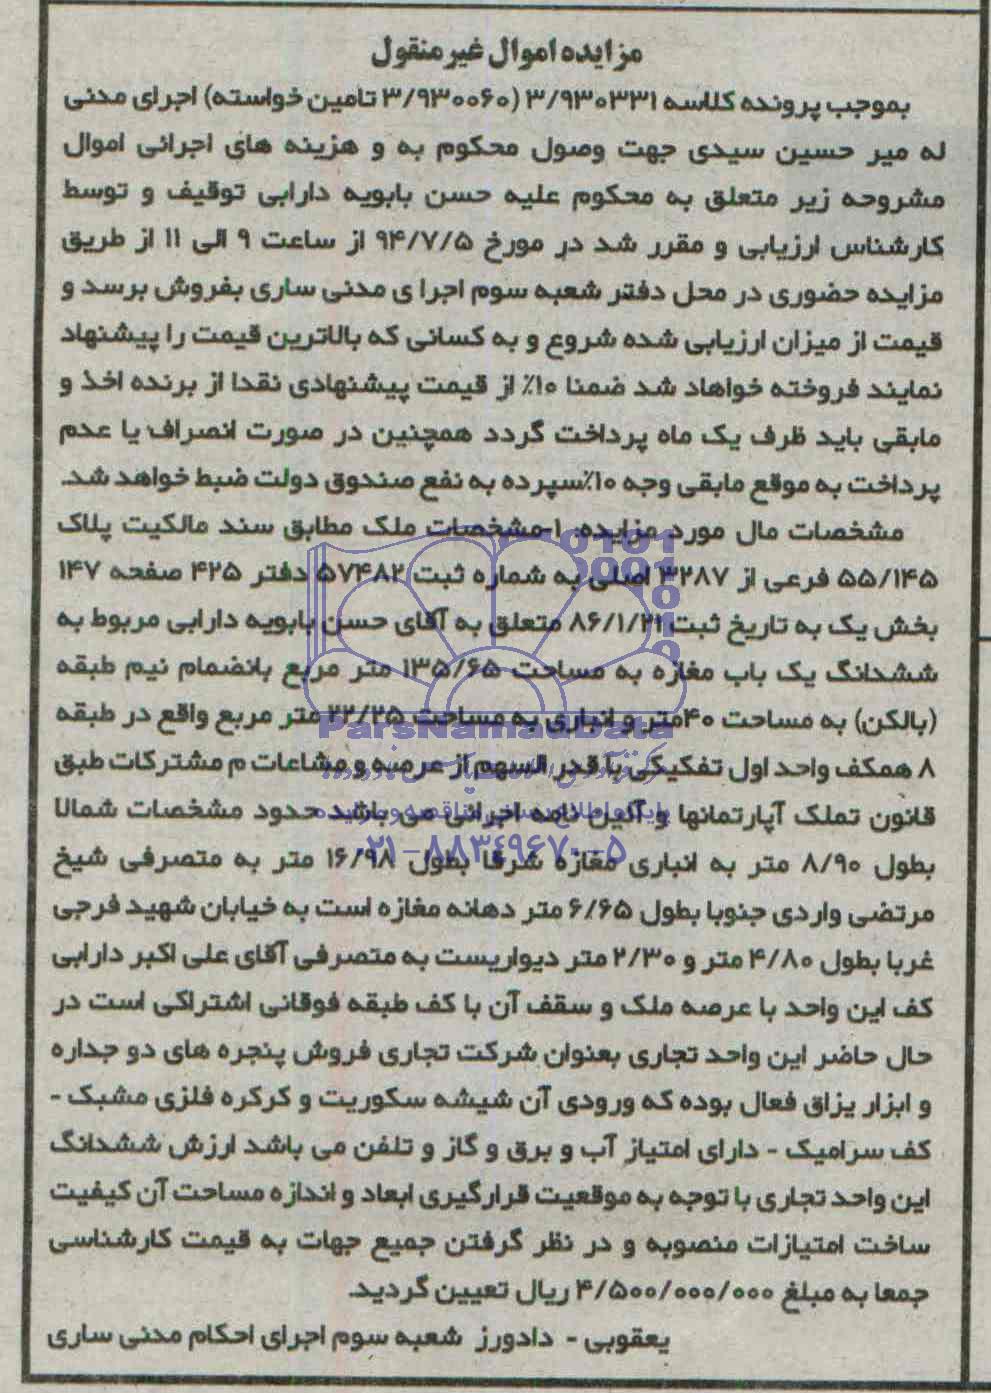 مزایده اموال غیر منقول
بموجب پرونده کلاسه ۳/۹۳۰۳۳۱ (۳/۹۳۰۰۶۰ تامین خواسته) اجرای مدنی
له میر حسین سیدی جهت وصول محکوم به و هزینه های اجرائی اموال
مشروحه زیر متعلق به محکوم علیه حسن بابویه دارابی توقیف و توسط
کارشناس ارزیابی و مقرر شد در مورخ ۹۴/۷/۵ از ساعت ۹ الی ۱۱ از طریق
مزایده حضوری در محل دفتر شعبه سوم اجرا ی مدنی ساری بفروش برسد و
قیمت از میزان ارزیابی شده شروع و به کسانی که بالاترین قیمت را پیشنهاد
نمایند فروخته خواهاد شد ضمنا ۱۰٪ از قیمت پیشنهادی نقدا از برنده اخذ و
مابقی باید ظرف یک ماه پرداخت گردد همچنین در صورت انصراف یا عدم
پرداخت به موقع مابقی وجه ۱۰٪سپرده به نفع صندوق دولت ضبط خواهد شد.
مشخصات مال مورد مزایده: ۱-مشخصات ملک مطابق سند مالکیت پلاک
۵۵/۱۴۵ فرعی از ۳۲۸۷ اصلی به شماره ثبت ۵۷۴۸۲ دفتر ۴۲۵ صفحه ۱۴۷
بخش یک به تاریخ ثبت ۸۶/۱/۲۱ متعلق به آقای حسن بابویه دارابی مربوط به
ششدانگ یک باب مغازه به مساحت ۱۳۵/۶۵ متر مربع بانضمام نیم طبقه
(بالکن) به مساحت ۴۰متر و انباری به مساحت ۲۲/۲۵ متر مربع واقع در طبقه
۸ همکف واحد اول تفکیکی با قدر السهم از عرصه و مشاعات م مشترکات طبق
قانون تملک آپارتمانها و آئین نامه اجرائی می باشد حدود مشخصات شمالا
بطول ۸/۹۰ متر به انباری مغازه شرقا بطول ۱۶/۹۸ متر به متصرفی شیخ
مرتضی واردی جنوبا بطول ۶/۶۵ متر دهانه مغازه است به خیابان شهید فرجی
غربا بطول ۴/۸۰ متر و ۲/۳۰ متر دیواریست به متصرفی آقای علی اکبر دارابی
کف این واحد با عرصه ملک و سقف آن با کف طبقه فوقانی اشتراکی است در
حال حاضر این واحد تجاری بعنوان شرکت تجاری فروش پنجره های دو جداره
و ابزار یزاق فعال بوده که ورودی آن شیشه سکوریت و کرکره فلزی مشبک -
کف سرامیک - دارای امتیاز آب و برق و گاز و تلفن می باشد ارزش ششدانگ
این واحد تجاری با توجه به موقعیت قرارگیری ابعاد و اندازه مساحت آن کیفیت
ساخت امتیازات منصوبه و در نظر گرفتن جمیع جهات به قیمت کارشناسی
جمعا به مبلغ ۴/۵۰۰/۰۰۰/۰۰۰ ریال تعیین گردید.
یعقوبی - دادورز شعبه سوم اجرای احکام مدنی ساری
ParsNamadData
۰۲۱-۸۸۳۴۹۶۷۰-۵